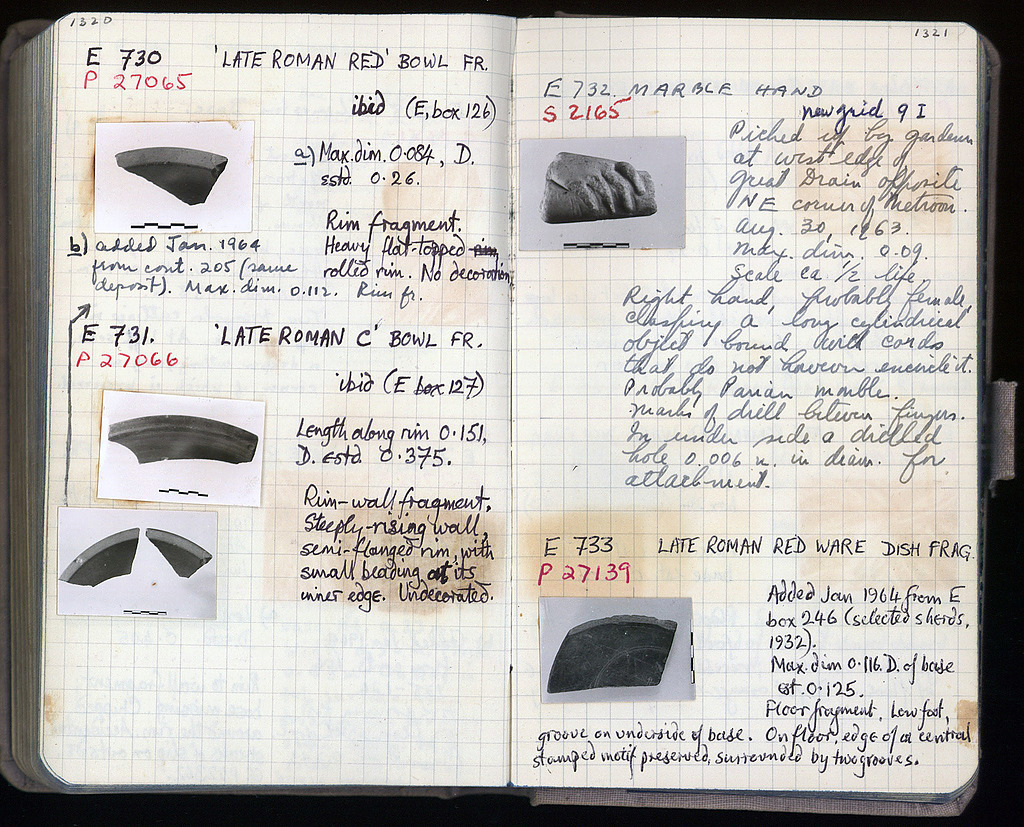 1320
E 730 'LATE ROMAN RED' BOWL FR.
P 27065
ibid (E, box 126)
a) Max. dim. 0.084, D.
estd. 0.26.
Rim fragment.
Heavy flat-topped rim,
rolled rim. No decoration.
b) added Jan. 1964
from cont. 205 (same
deposit). Max. dim. 0.112. Rim fr.
E 731. 'LATE ROMAN C' BOWL FR.
P 27066
ibid (E box 127)
Length along rim 0.151,
D. estd 0.375.
Rim-wall fragment.
Steeply-rising wall,
semi-flanged rim, with
small beading at its
inner edge. Undecorated.
1321
E 732. MARBLE HAND
S 2165
new grid 9 I
Picked up by gardeners
at west edge of
Great Drain opposite
NE corner of Metroon.
Aug. 30, 1963.
Max. dim. 0.09.
Scale ca. 1/2 life.
Right hand, probably female,
clasping a long cylindrical
object bound with cords
that do not however encircle it.
Probably Parian marble.
Marks of drill between fingers.
In under side a drilled
hole 0.006 m. in diam. for
attachment.
E 733 LATE ROMAN RED WARE DISH FRAG.
P 27139
Added Jan 1964 from E
box 246 (selected sherds,
1932).
Max. dim 0.116. D. of base
est. 0.125.
Floor fragment, low foot,
groove on underside of base. On floor, edge of a central
stamped motif preserved, surrounded by two grooves.